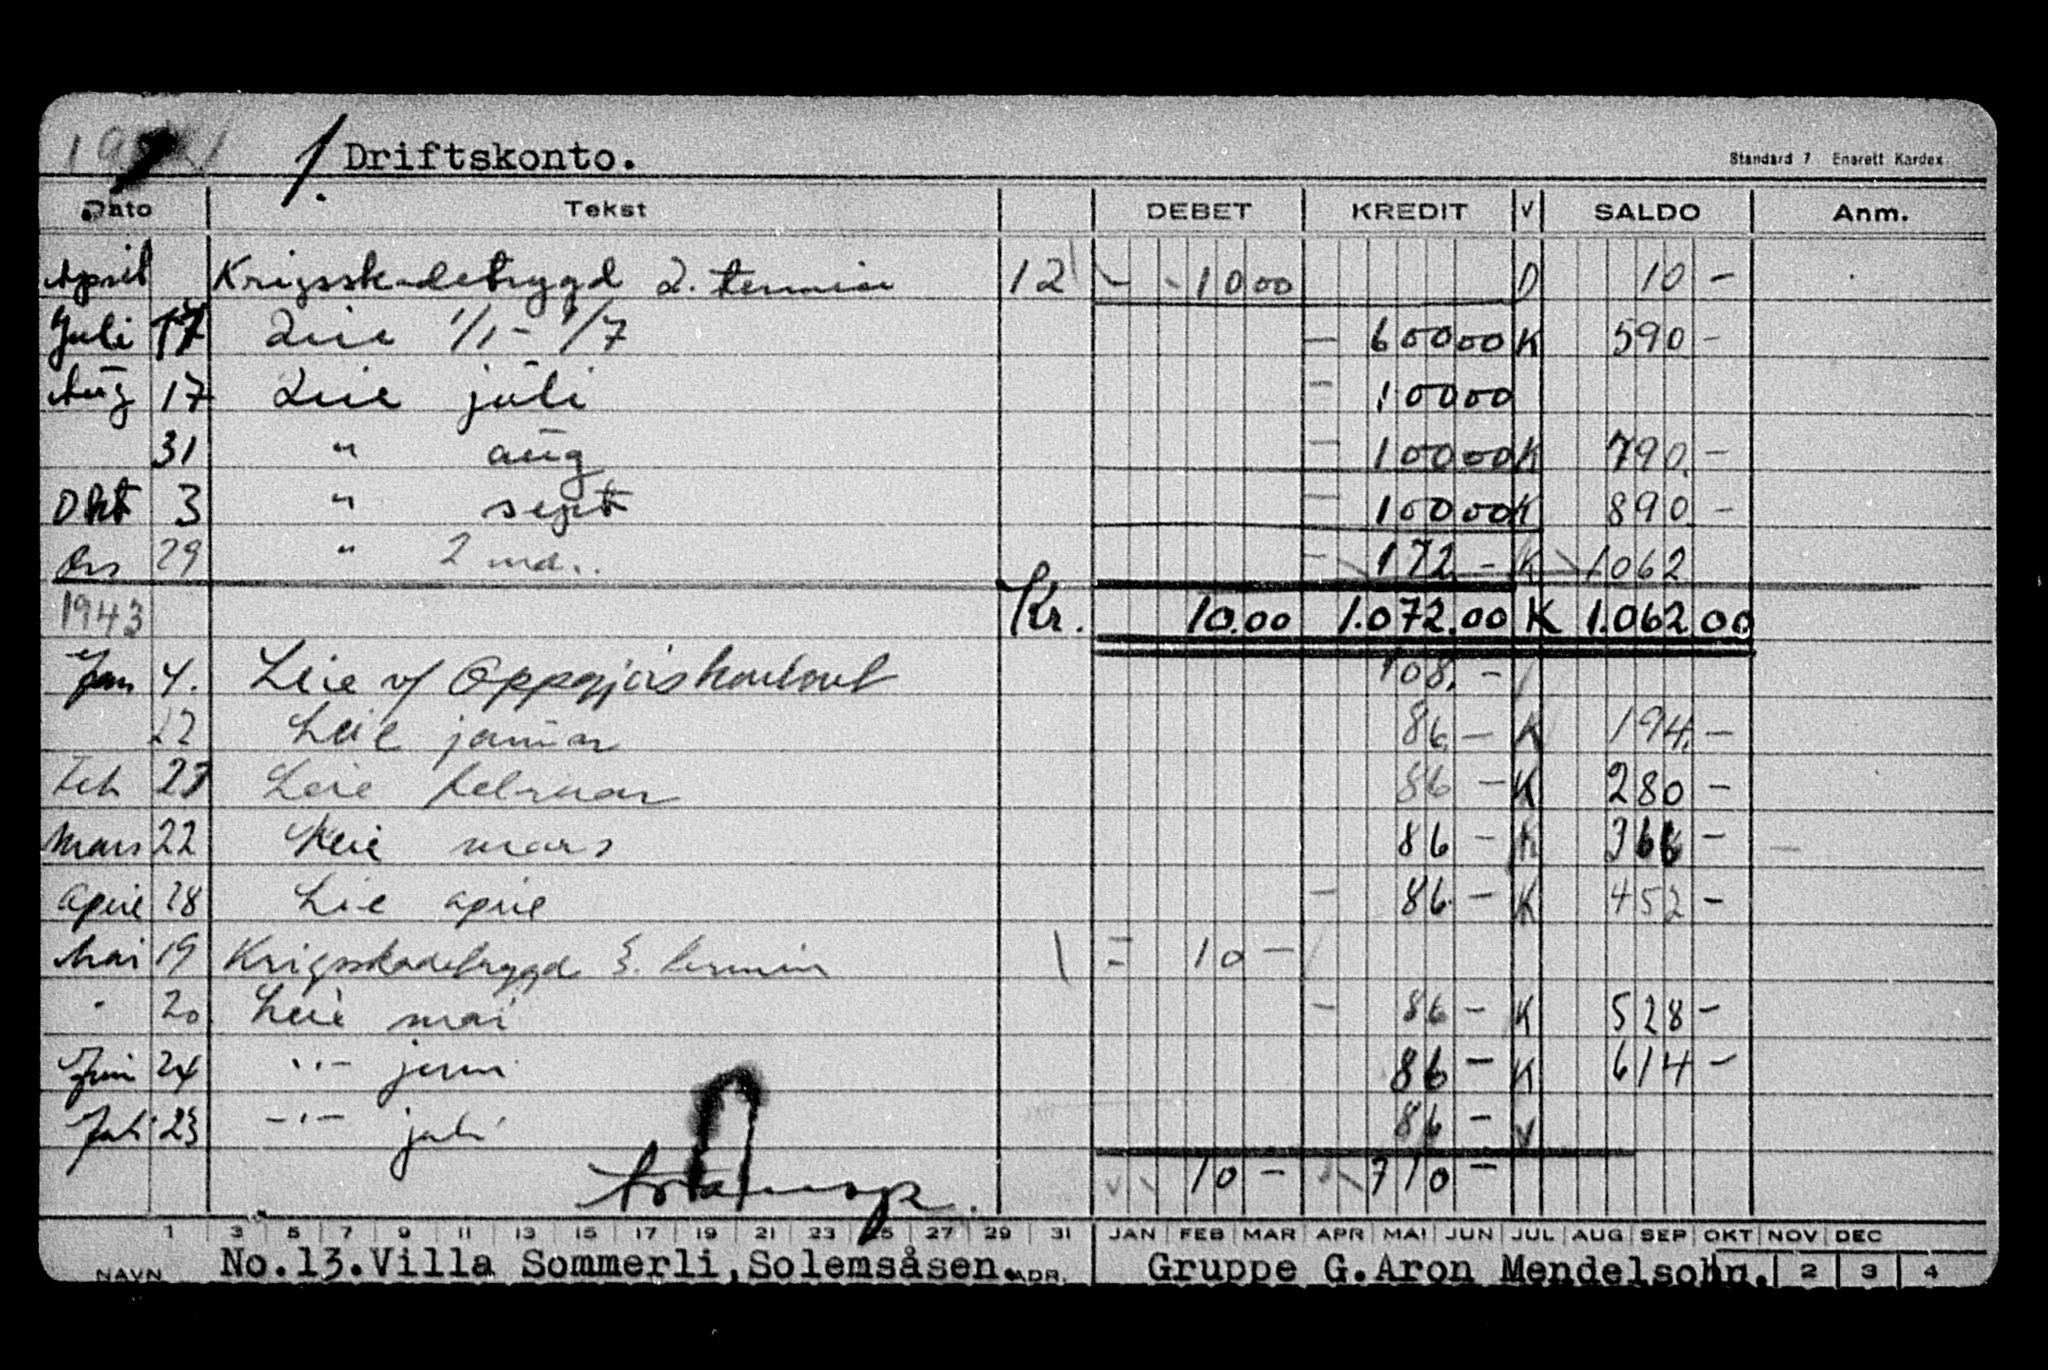 1. Driftskonto.
Standard 7 Enerett Kardex
Dato Tekst DEBET KREDIT V SALDO Anm.
April Krigsskadetrygd 2. termin 12 10 00 D 10 -
Juli 17 Leie 1/1 - 1/7 600 00 K 590 -
Aug 17 Leie juli 100 00
31 " aug 100 00 K 790 -
Okt 3 " sept 100 00 K 890 -
Des 29 " 2 md.. 172 - K 1062
Kr. 10.00 1.072.00 K 1.062.00
1943
Jan 4. Leie v/ Oppgjørskontoret 108. -
22 Leie januar 86 - K 194. -
Feb 27 Leie februar 86 - K 280 -
Mars 22 Leie mars 86 - K 366 -
April 28 Leie april 86 - K 452 -
Mai 19 Krigsskadetrygd 3. termin 10 -
" 20 Leie mai 86 - K 528 -
Juni 24 -"- juni 86 - K 614 -
Juli 23 -"- juli 86 -
10 - 710 -
1 3 5 7 9 11 13 15 17 19 21 23 25 27 29 31 JAN FEB MAR APR MAI JUN JUL AUG SEP OKT NOV DEC
NAVN No.13.Villa Sommerli,Solemsåsen. ADR. Gruppe G.Aron Mendelsohn. 2 3 4